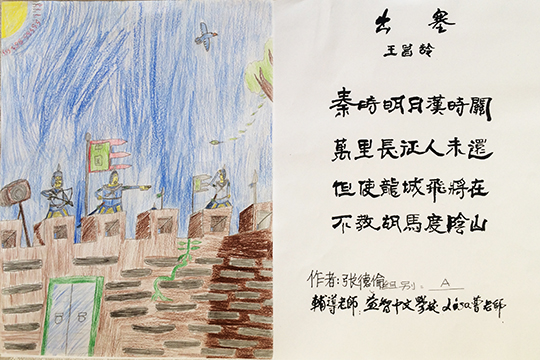 中国
出塞
王昌龄
秦時明月漢時關
萬里長征人未還
但使龍城飛將在
不敎胡馬度陰山
作者:张德倫 組別: A
輔導老師: 益智中文學校 曹老师